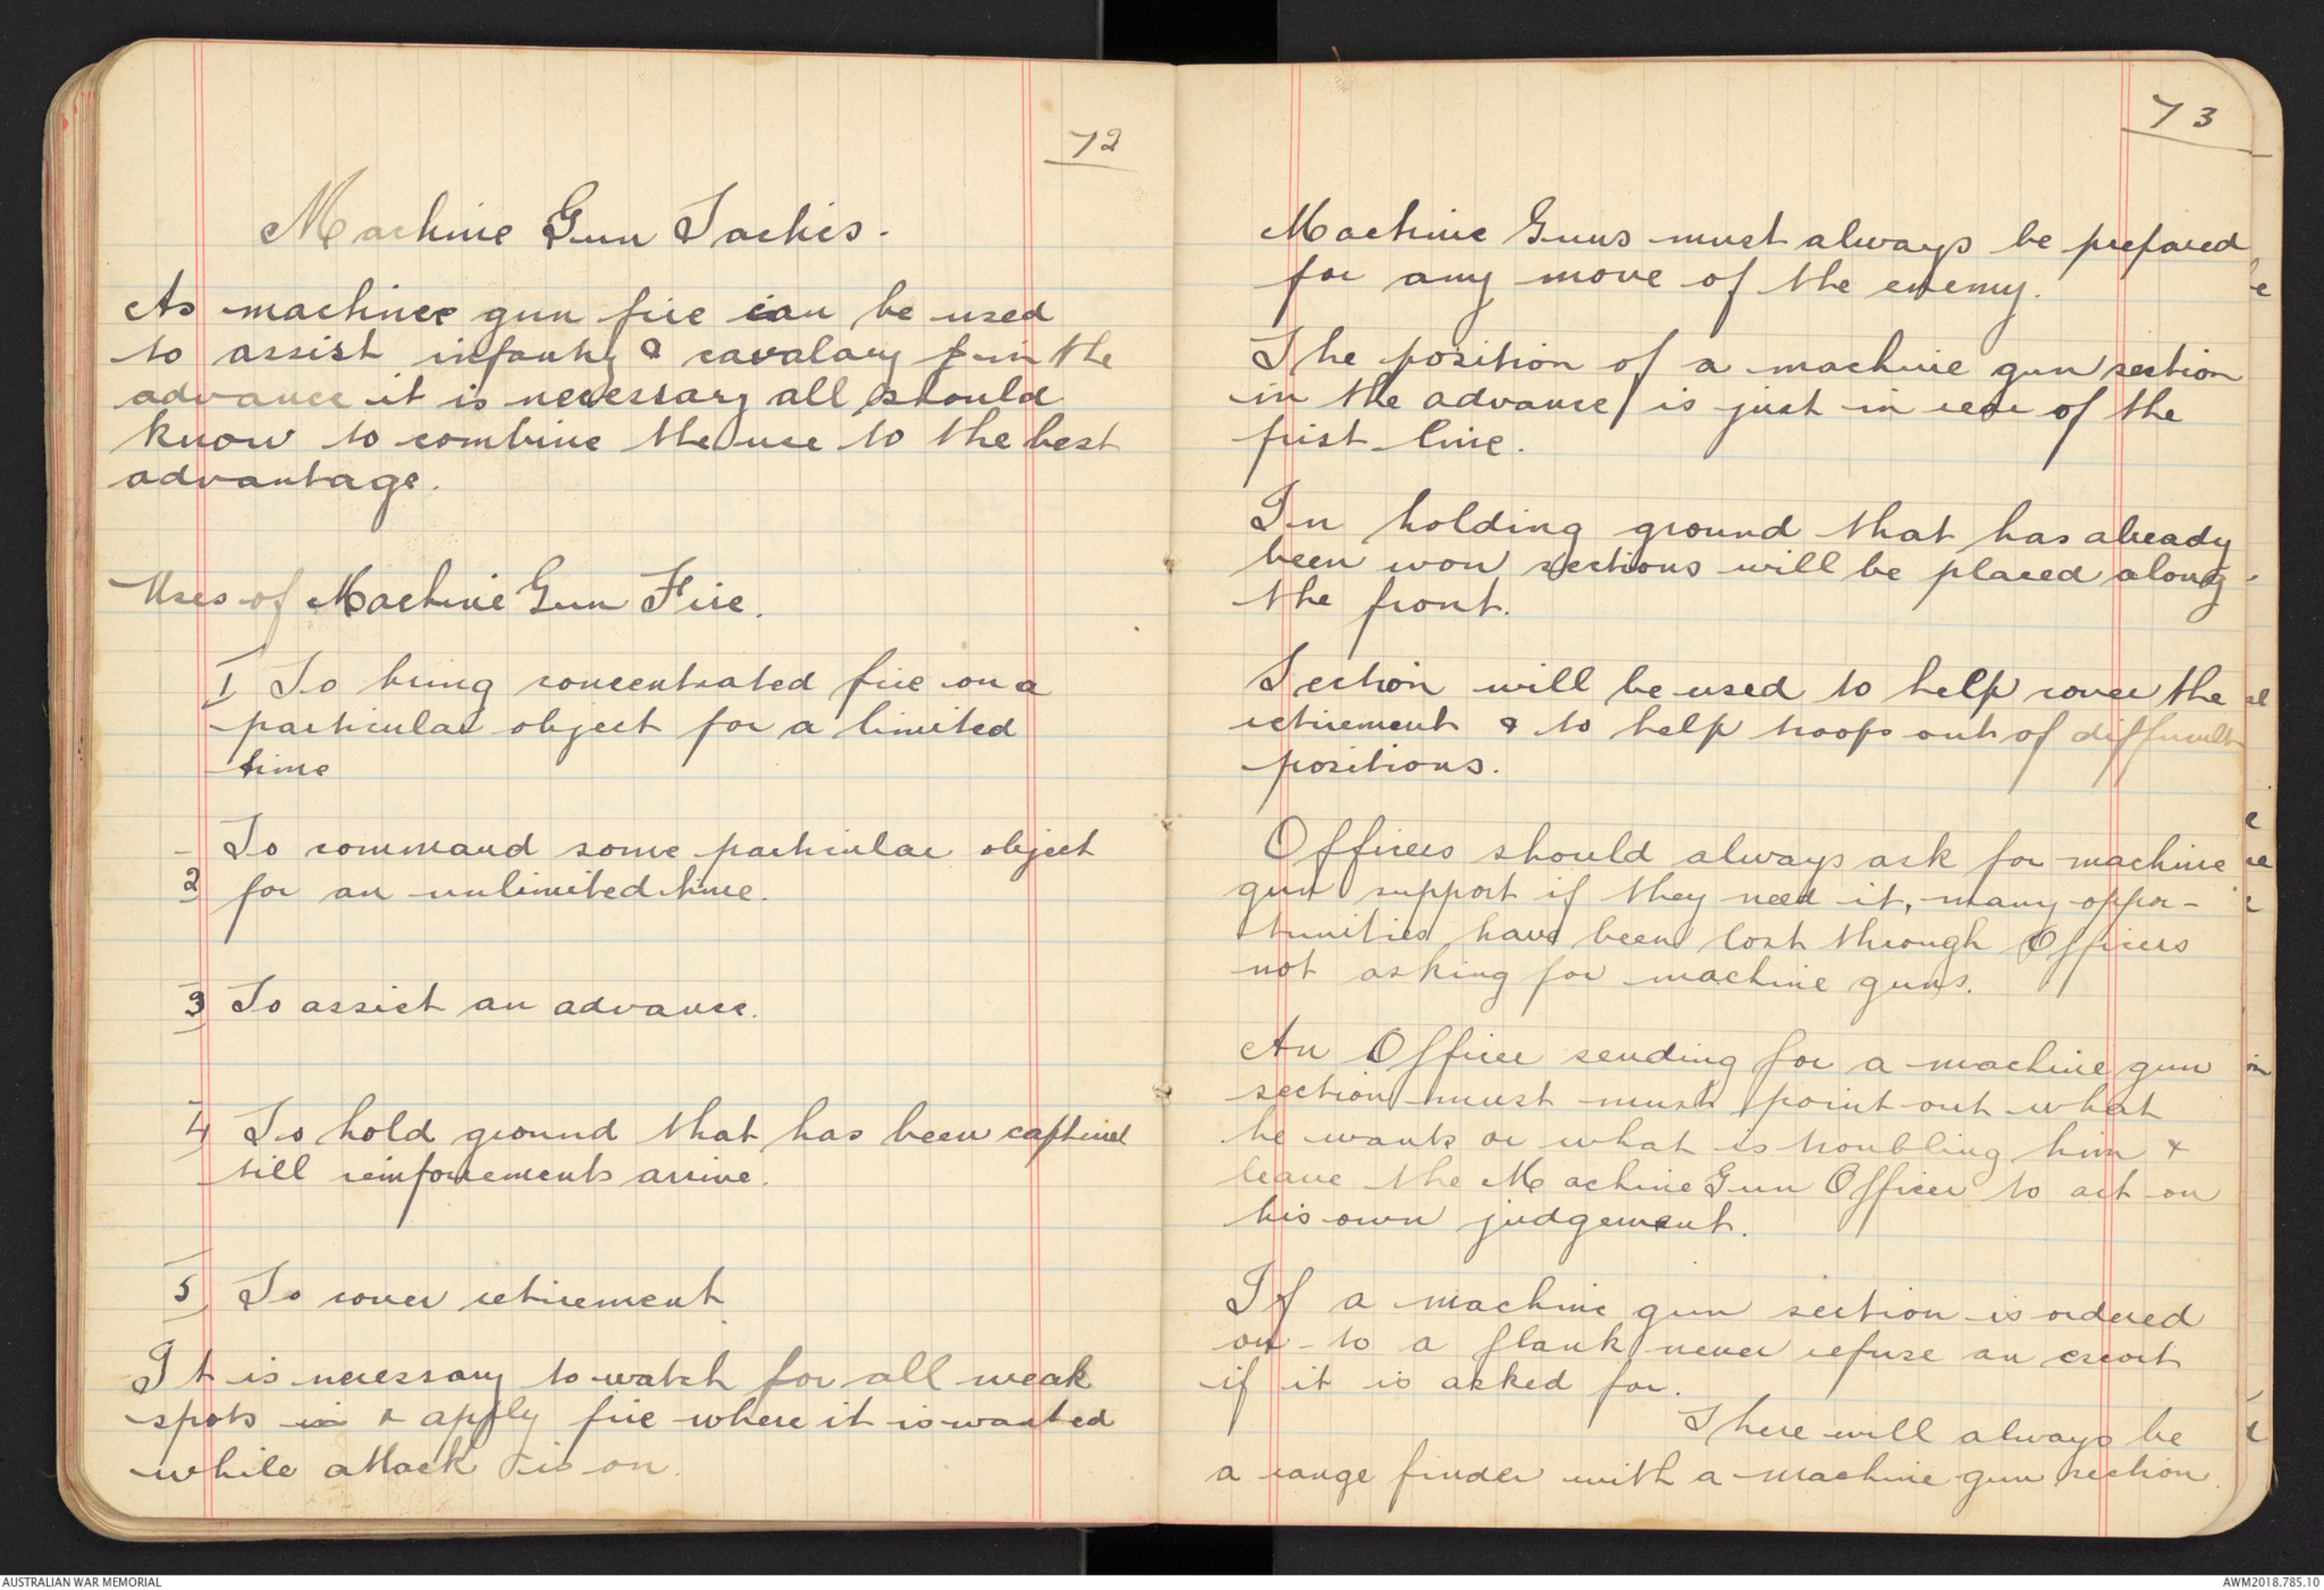 72
Machine Gun Tactics.
As machine gun fire can be used
to assist infantry & cavalary in the
advance it is necessary all should
know to combine the use to the best
advantage.
Uses of Machine Gun Fire.
1 To bring concentrated fire on a
particular object for a limited
time
To command some particular object
2 for an unlimited time.
3 To assist an advance.
4 To hold ground that has been captured
till reinforcements arrive.
5 To cover retirement
It is necessary to watch for all weak
spots & apply fire where it is wanted
while attack is on.
73
Machine Guns must always be prepared
for any move of the enemy.
The position of a machine gun section
in the advance is just in rear of the
first line.
In holding ground that has already
been won sections will be placed along
the front.
Section will be used to help cover the
retirement & to help troops out of difficult
positions.
Officers should always ask for machine
gun support if they need it, many oppor-
tunities have been lost through Officers
not asking for machine guns.
An Officer sending for a machine gun
section must must point out what
he wants or what is troubling him &
leave the Machine Gun Officer to act on
his own judgement.
If a machine gun section is ordered
on to a flank never refuse an escort
if it is asked for.
There will always be
a range finder with a machine gun section.
AUSTRALIAN WAR MEMORIAL
AWM2018.785.10